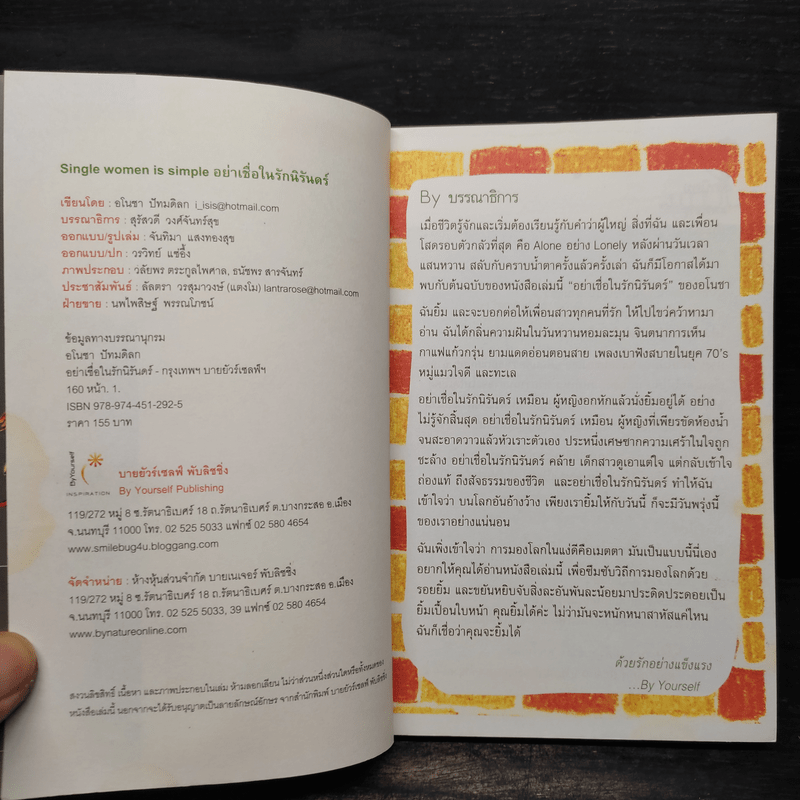 Single women is simple อย่าเชื่อในรักนิรันดร์
เขียนโดย : อโนชา ปัทมดิลก i_isis@hotmail.com
บรรณาธิการ : สุรัสวดี วงศ์จันทร์สุข
ออกแบบ/รูปเล่ม : จันทิมา แสงทองสุข
ออกแบบ/ปก : วรวิทย์ แซ่อึ้ง
ภาพประกอบ : วลัยพร ตระกูลไพศาล, ธนัชพร สารจันทร์
ประชาสัมพันธ์ : ลัลตรา วรสุมาวงษ์ (แตงโม) lantrarose@hotmail.com
ฝ่ายขาย : นพไพสิษฐ์ พรรณโภชน์
ข้อมูลทางบรรณานุกรม
อโนชา ปัทมดิลก
อย่าเชื่อในรักนิรันดร์ - กรุงเทพฯ บายยัวร์เซลฟ์ฯ
160 หน้า. 1.
ISBN 978-974-451-292-5
ราคา 155 บาท
ByYourself
INSPIRATION
บายยัวร์เซลฟ์ พับลิชชิ่ง
By Yourself Publishing
119/272 หมู่ 8 ซ.รัตนาธิเบศร์ 18 ถ.รัตนาธิเบศร์ ต.บางกระสอ อ.เมือง
จ.นนทบุรี 11000 โทร. 02 525 5033 แฟกซ์ 02 580 4654
www.smilebug4u.bloggang.com
จัดจำหน่าย : ห้างหุ้นส่วนจำกัด บายเนเจอร์ พับลิชชิ่ง
119/272 หมู่ 8 ซ.รัตนาธิเบศร์ 18 ถ.รัตนาธิเบศร์ ต.บางกระสอ อ.เมือง
จ.นนทบุรี 11000 โทร. 02 525 5033, 39 แฟกซ์ 02 580 4654
www.bynatureonline.com
สงวนลิขสิทธิ์ เนื้อหา และภาพประกอบในเล่ม ห้ามลอกเลียน ไม่ว่าส่วนหนึ่งส่วนใดหรือทั้งหมดของ
หนังสือเล่มนี้ นอกจากจะได้รับอนุญาตเป็นลายลักษณ์อักษร จากสำนักพิมพ์ บายยัวร์เซลฟ์ พับลิชชิ่ง
By บรรณาธิการ
เมื่อชีวิตรู้จักและเริ่มต้องเรียนรู้กับคำว่าผู้ใหญ่ สิ่งที่ฉัน และเพื่อน
โสดรอบตัวกลัวที่สุด คือ Alone อย่าง Lonely หลังผ่านวันเวลา
แสนหวาน สลับกับคราบน้ำตาครั้งแล้วครั้งเล่า ฉันก็มีโอกาสได้มา
พบกับต้นฉบับของหนังสือเล่มนี้ “อย่าเชื่อในรักนิรันดร์” ของอโนชา
ฉันยิ้ม และจะบอกต่อให้เพื่อนสาวทุกคนที่รัก ให้ไปไขว่คว้าหามา
อ่าน ฉันได้กลิ่นความฝันในวันหวานหอมละมุน จินตนาการเห็น
กาแฟแก้วกรุ่น ยามแดดอ่อนตอนสาย เพลงเบาฟังสบายในยุค 70's
หมู่แมวใจดี และทะเล
อย่าเชื่อในรักนิรันดร์ เหมือน ผู้หญิงอกหักแล้วนั่งยิ้มอยู่ได้ อย่าง
ไม่รู้จักสิ้นสุด อย่าเชื่อในรักนิรันดร์ เหมือน ผู้หญิงที่เพียรขัดห้องน้ำ
จนสะอาดวาวแล้วหัวเราะตัวเอง ประหนึ่งเศษซากความเศร้าในใจถูก
ชะล้าง อย่าเชื่อในรักนิรันดร์ คล้าย เด็กสาวดูเอาแต่ใจ แต่กลับเข้าใจ
ถ่องแท้ ถึงสัจธรรมของชีวิต และอย่าเชื่อในรักนิรันดร์ ทำให้ฉัน
เข้าใจว่า บนโลกอันอ้างว้าง เพียงเรายิ้มให้กับวันนี้ ก็จะมีวันพรุ่งนี้
ของเราอย่างแน่นอน
ฉันเพิ่งเข้าใจว่า การมองโลกในแง่ดีคือเมตตา มันเป็นแบบนี้นี่เอง
อยากให้คุณได้อ่านหนังสือเล่มนี้ เพื่อซึมซับวิถีการมองโลกด้วย
รอยยิ้ม และขยันหยิบจับสิ่งละอันพันละน้อยมาประดิดประดอยเป็น
ยิ้มเปื้อนใบหน้า คุณยิ้มได้ค่ะ ไม่ว่ามันจะหนักหนาสาหัสแค่ไหน
ฉันก็เชื่อว่าคุณจะยิ้มได้
ด้วยรักอย่างแข็งแรง
...By Yourself